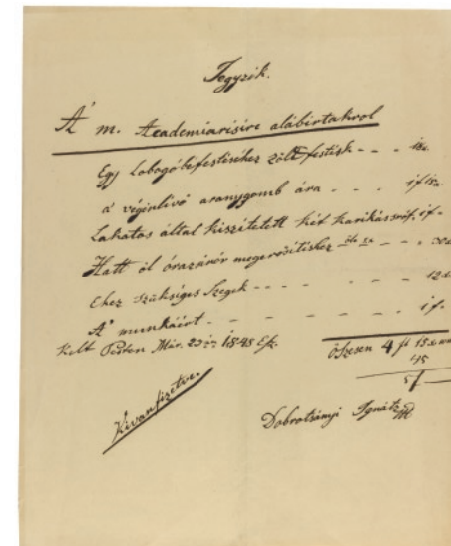 Jegyzék.
A' m. Academia részire alább irtakrol
Egy Lobogó befestéséhez zöld festék - - - 18x.
a végin lévő aranygomb ára - - - 1f 15x.
Lakatos által készitetett két karikás sróf, 1f-
Hatt öl óra zsinór megerősitéshez - - 30x
Ehez szükséges Szegek - - - - - 12x
A' munkáért - - - - - - 1f-
Kelt Pesten Már. 23 1848
Öszesen 4 ft 15x
45
5f
Ki van fizetve.
Dobrotsányi Ignátz